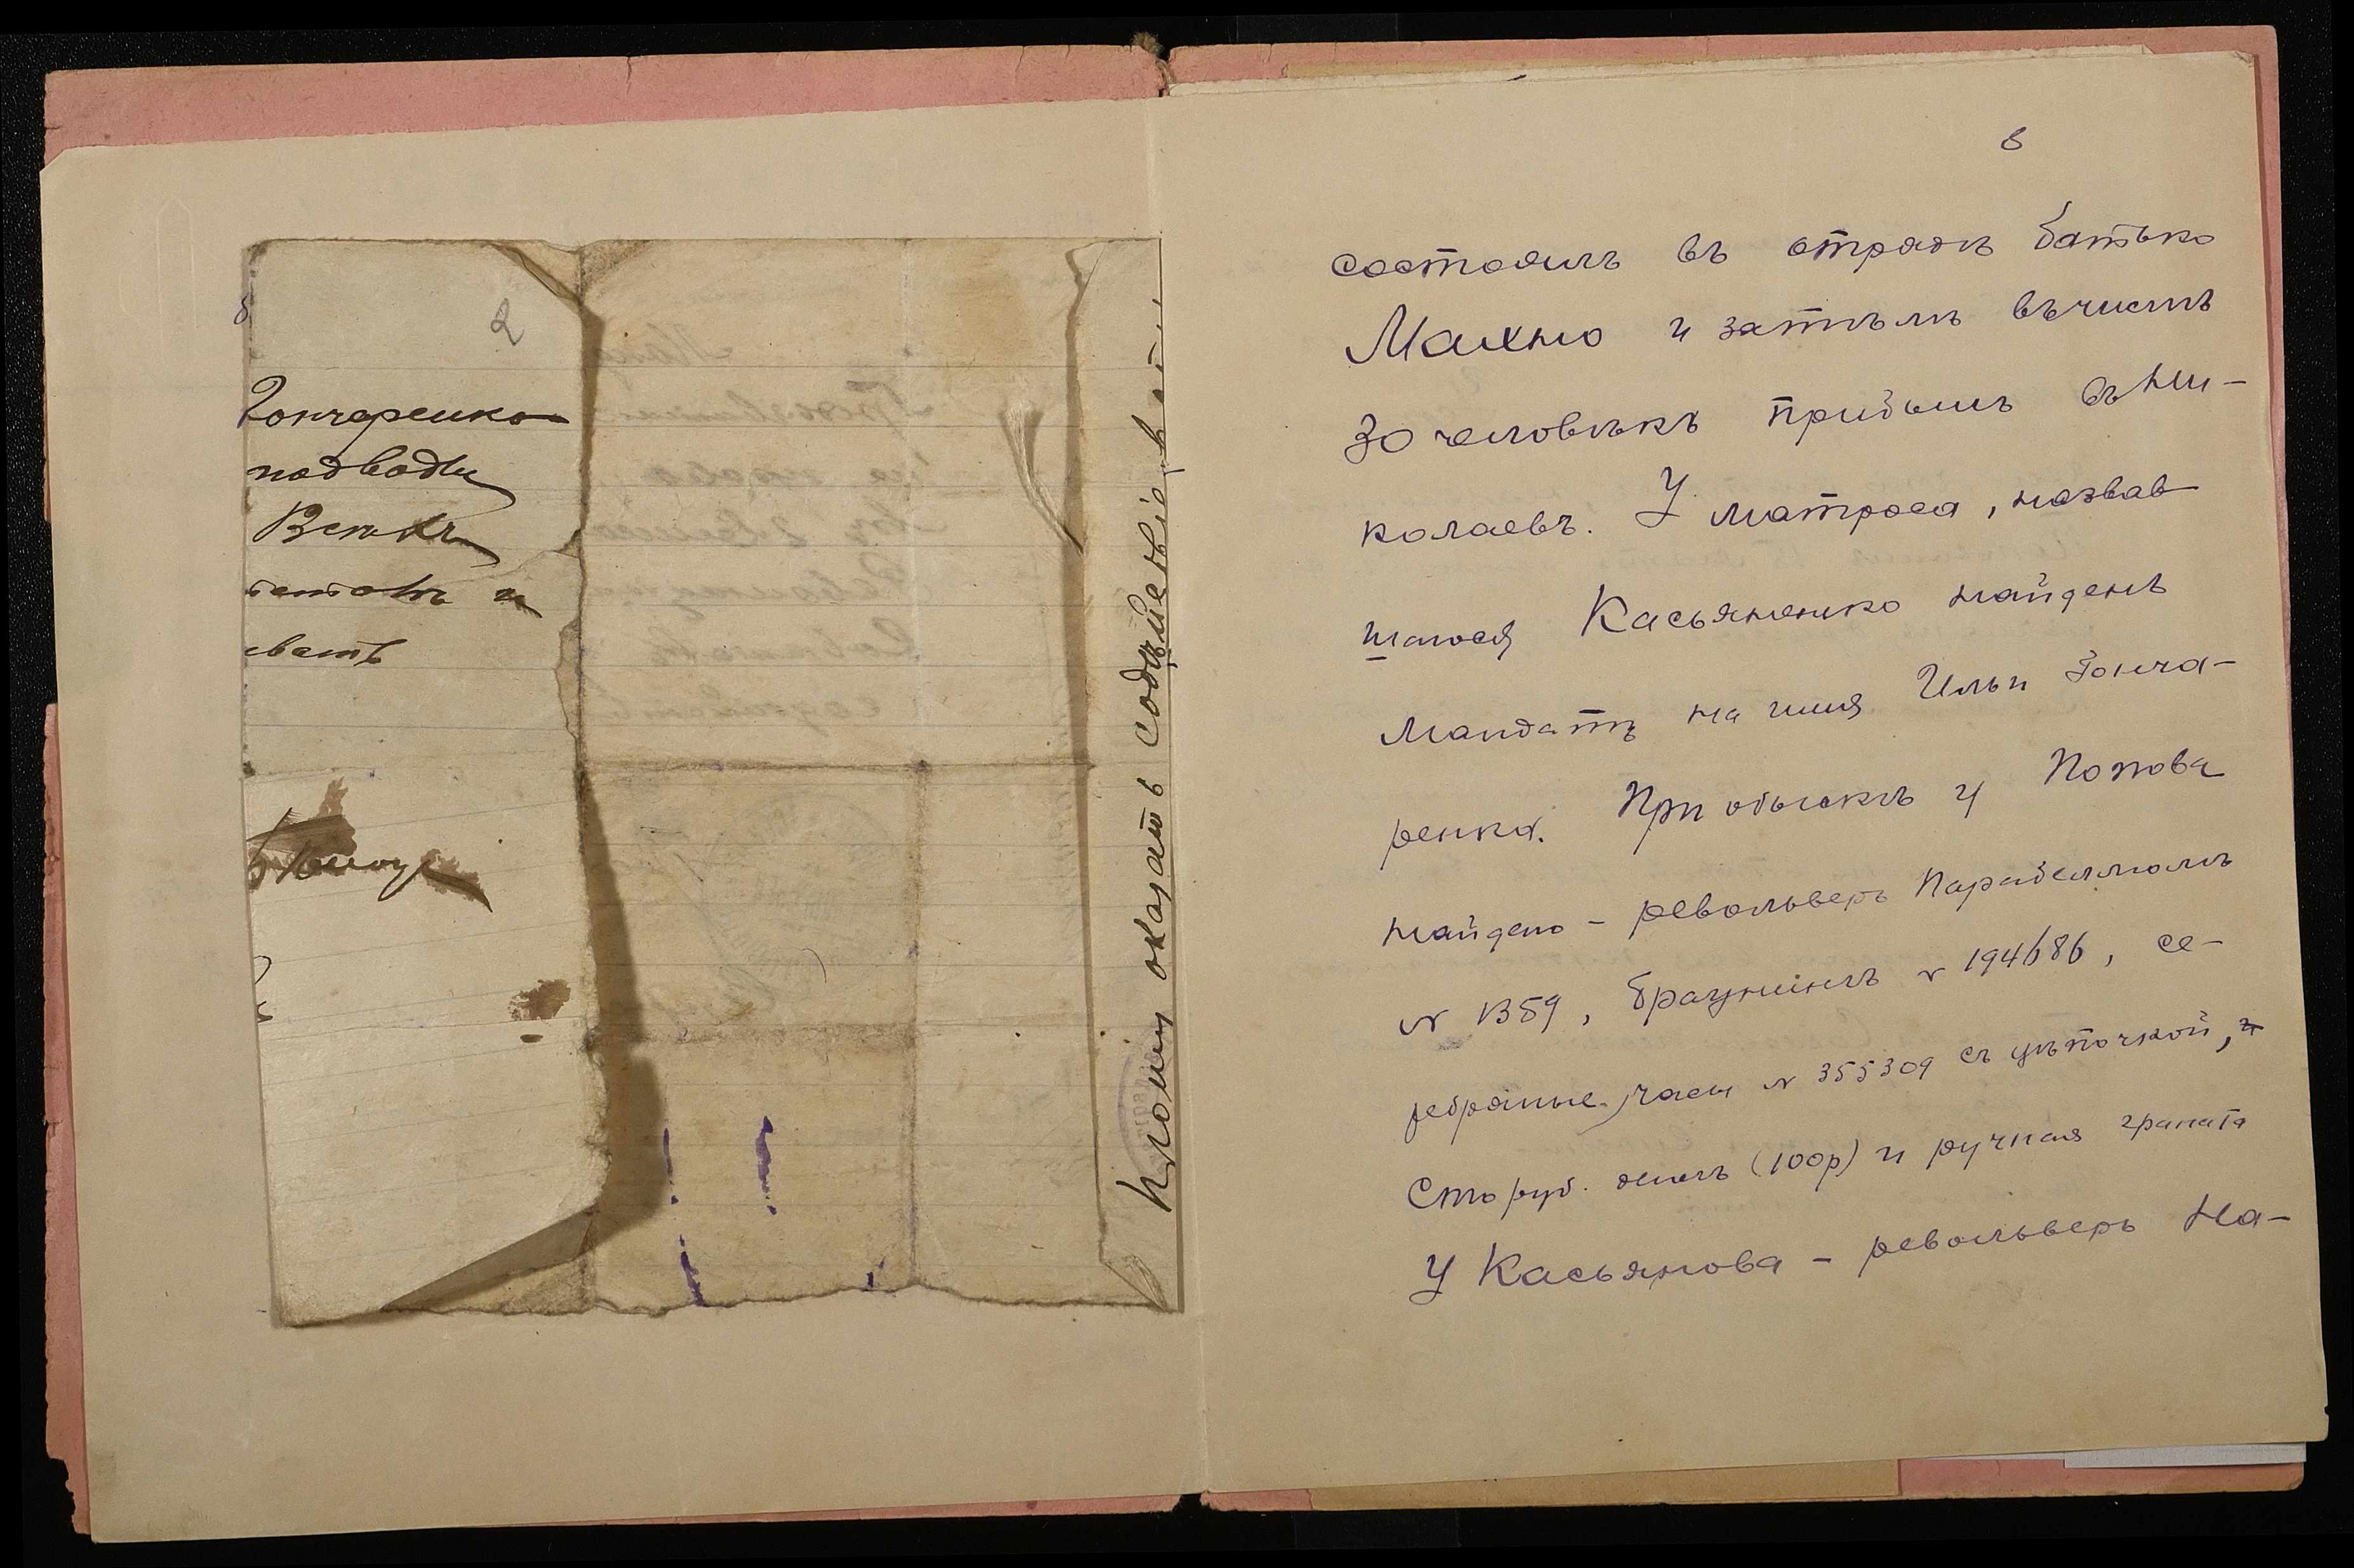 2
Гончаренко
подводы
вать
Прошу оказать содѣйствіе
в
состоялъ въ отрядѣ батько
Махно и затѣмъ въ числѣ
30 человѣкъ прибылъ въ Ни-
колаевъ. У матроса, назвав
шагося Касьяненко найденъ
мандатъ на имя Ильи Гонча-
ренко. При обыскѣ у Попова
найдено - револьверъ Парабеллюмъ
№ 1359, браунингъ № 194686, се-
ребряные часы № 355309 съ цѣпочкой,
Сто руб. денегъ (100р) и ручная граната
У Касьянова - револьверъ На-